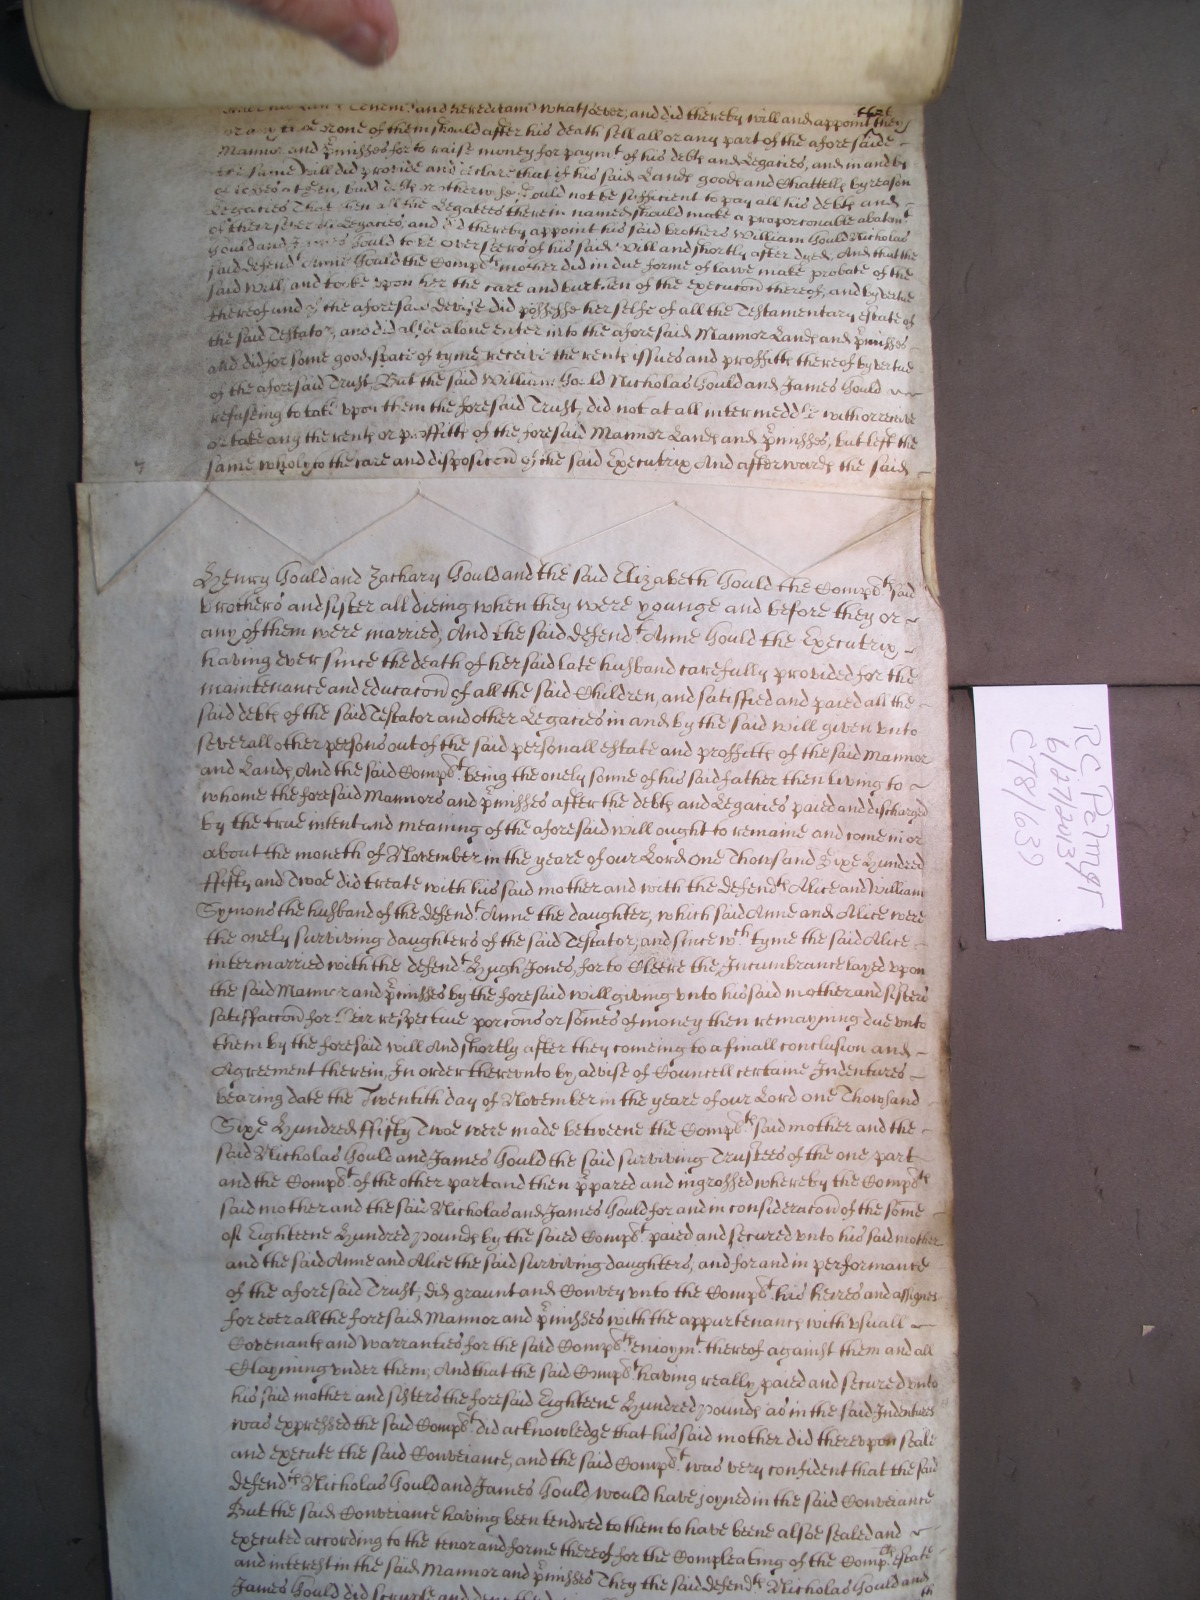 and hereditam^ts whatsoever, and did thereby will and appoint they
that
or any one or none of them should after his death sell all or any part of the aforesaide
Mannor and p^rmisses for to raise money for paym^t of his debts and Legacies, and in and by
the same Will did provide and declare that if his said Lands goods and Chattells by reason
of losses at Sea, bad debts or otherwise should not be sufficient to pay all his debts and
Legacies That then all the Legatees therein named should make a proporconable abatem^t
of their severall Legacies, and did thereby appoint his said brothers William Gould Nicholas
Gould and James Gould to be overseers of his said Will and shortly after dyed, And that the
said defend^t Anne Gould the Compl^ts mother did in due forme of lawe make probate of the
said Will, and tooke upon her the care and burthen of the execucon thereof, and by vertue
thereof and of the aforesaid devise did possesse herselfe of all the Testamentary estate of
the said Testator, and did alsoe alone enter into the aforesaid Mannor Lands and p^rmisses
and did for some good space of tyme receive the rents issues and proffitts thereof by vertue
of the aforesaid Trust, But the said William Gould Nicholas Gould and James Gould
refuseing to take upon them the foresaid Trust, did not at all intermeddle with or receive
or take any the rents or proffitts of the foresaid Mannor Lands and p^rmisses, but left the
same wholy to the care and disposicon of the said Executrix And afterwards the said
Henry Gould and Zachary Gould and the said Elizabeth Gould the Compl^ts said
brothers and sister all dieing when they were younge and before they or
any of them were married, And the said defend^t Anne Gould the Executrix
having ever since the death of her said late husband carefully provided for the
maintenance and educacon of all the said Children, and satisfied and paied all the
said debts of the said Testator and other Legacies in and by the said Will given unto
severall other persons out of the said personall estate and proffitts of the said Mannor
and Lands, And the said Compl^t being the onely sonne of his said father then living to
whome the foresaid Mannors and p^rmisses after the debts and Legacies paied and discharged
by the true intent and meaning of the aforesaid will ought to remaine and come in or
about the moneth of November in the yeare of our Lord One Thousand Sixe Hundred
ffifty and Twoe did treate with his said mother and with the defend^ts Alice and William
Symons the husband of the defend^t Anne the daughter, which said Anne and Alice were
the onely surviving daughters of the said Testator, and since w^ch tyme the said Alice
intermarried with the defend^t Hugh Jones, for to Cleere the Incumbrance layed upon
the said Mannor and p^rmisses by the foresaid will giving unto his said mother and sisters
satisfaccon for their respective porcons or somes of money then remayning due unto
them by the foresaid will And shortly after they comeing to a finall conclusion and
Agreement therein, In order thereunto by advise of Councell certaine Indentures
bearing date the Twentith day of November in the yeare of our Lord one Thousand
Sixe Hundred ffifty Twoe were made betweene the Compl^ts said mother and the
said Nicholas Gould and James Gould the said surviving Trustees of the one part
and the Compl^t of the other part and then p^rpared and ingrossed whereby the Compl^ts
said mother and the said Nicholas and James Gould for and in consideracon of the some
of Eighteene Hundred pounds by the saied Compl^t paied and secured unto his said mother
and the said Anne and Alice the said surviving daughters, and for and in performance
of the aforesaid Trust, did graunt and Convey unto the Compl^t his heires and assignes
for ever all the foresaid Mannor and p^rmisses with the appurtenancs with usuall
Covenants and warranties for the said Compl^ts enioym^t thereof against them and all
Clayming under them, And that the said Compl^t having really paied and secured unto
his said mother and sisters the foresaid Eighteene Hundred pounds as in the said Indentures
was expressed the said Compl^t did acknowledge that his said mother did thereupon seale
and execute the said Conveiance, and the said Compl^t was very confident that the said
defend^ts Nicholas Gould and James Gould would have joyned in the said Conveiance
But the said Conveiance having been tendred to them to have beene alsoe sealed and
executed according to the tenor and forme thereof for the Compleating of the Compl^ts estate
and interest in the said Mannor and p^rmisses They the said defend^ts Nicholas Gould and
James Gould did
RC Palmer
6/27/2013
C78/639